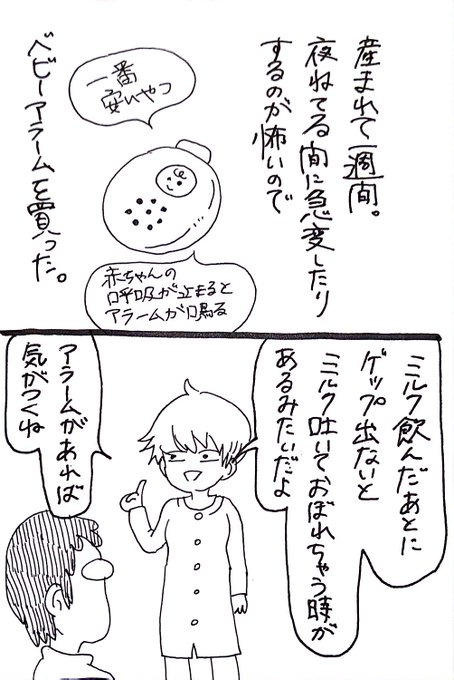 産まれて一週間。
夜ねてる間に急変したり
するのが怖いので
一番
安いやつ
ベビーアラームを買った。
赤ちゃんの
呼吸が止まると
アラームが鳴る
ミルク飲んだあとに
ゲップ出ないと
ミルク吐いておぼれちゃう時が
あるみたいだよ
アラームがあれば
気がつくね